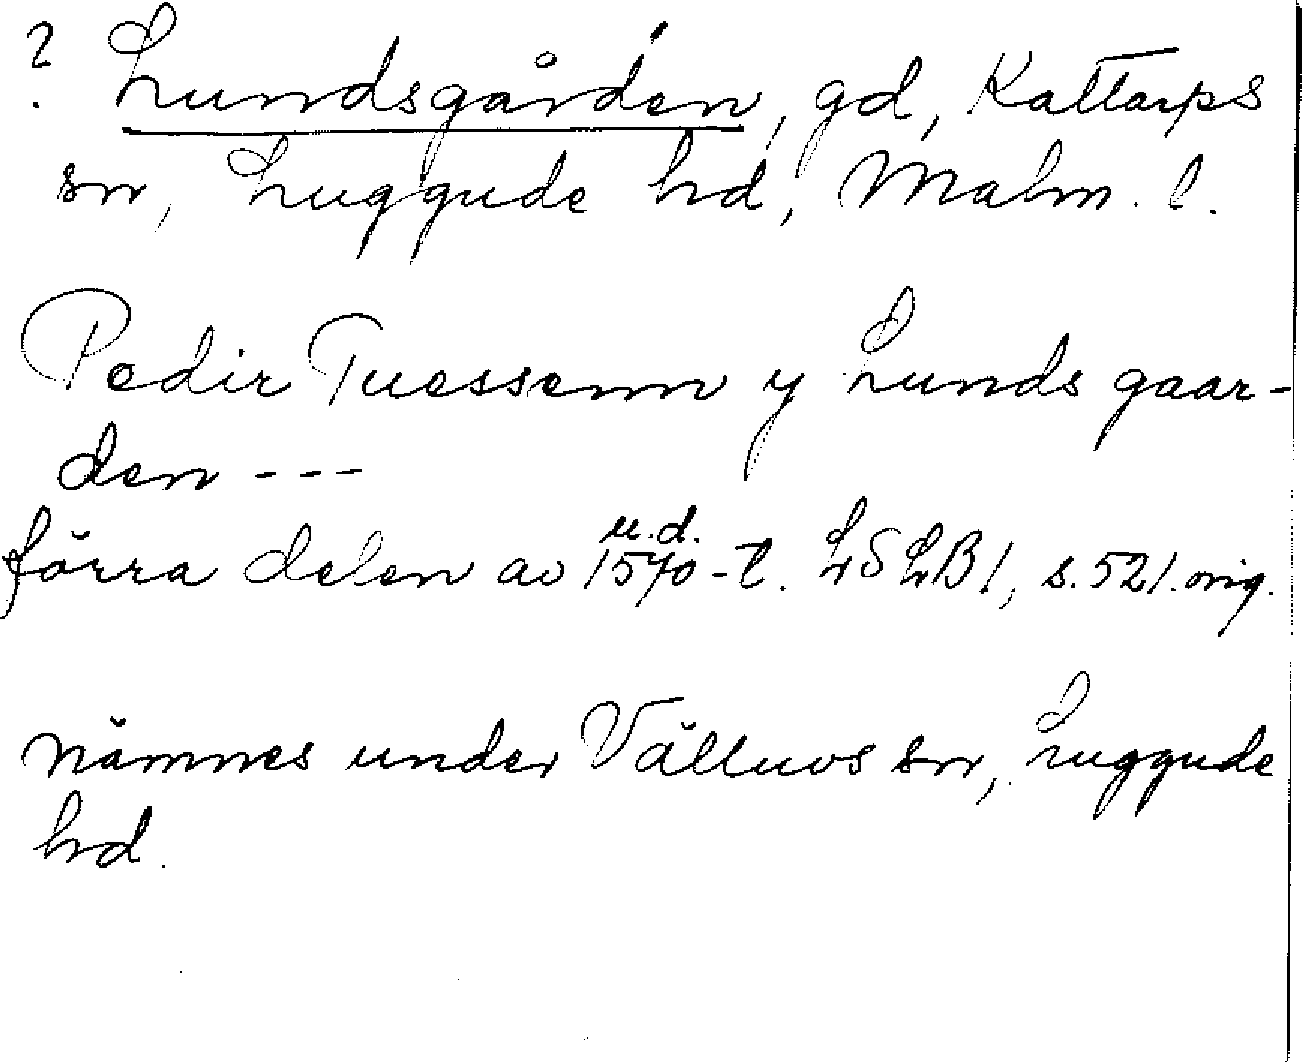 ? Lundsgården, gd, Kattarps
sn, Luggude hd, Malm. l.
Pedir Tuessenn y Lunds gaar-
den ---
u.d.
förra delen av 1570-t. LSLB1, s. 521. orig.
nämnes under Välluvs sn, Luggude
hd.